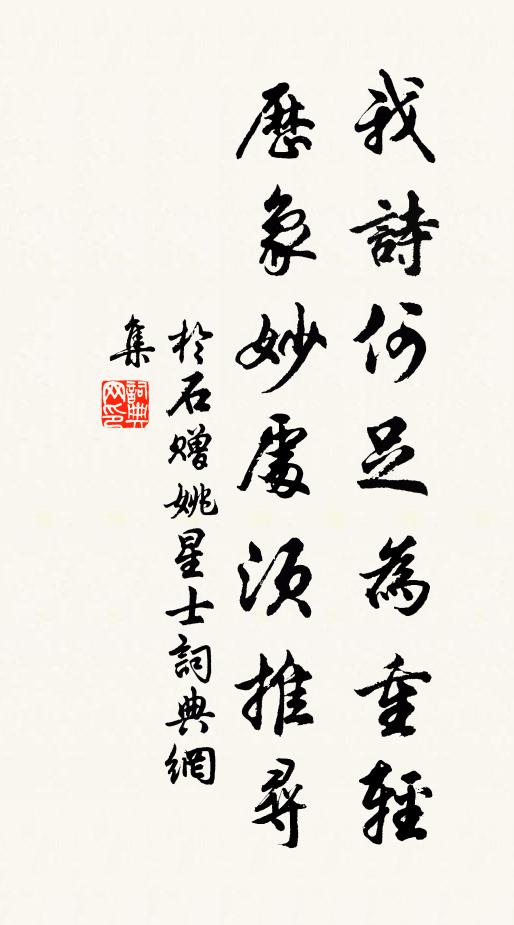 我詩何足為重輕
歷象妙處須推尋
於石贈姚星士詞典網
集
詞典網印